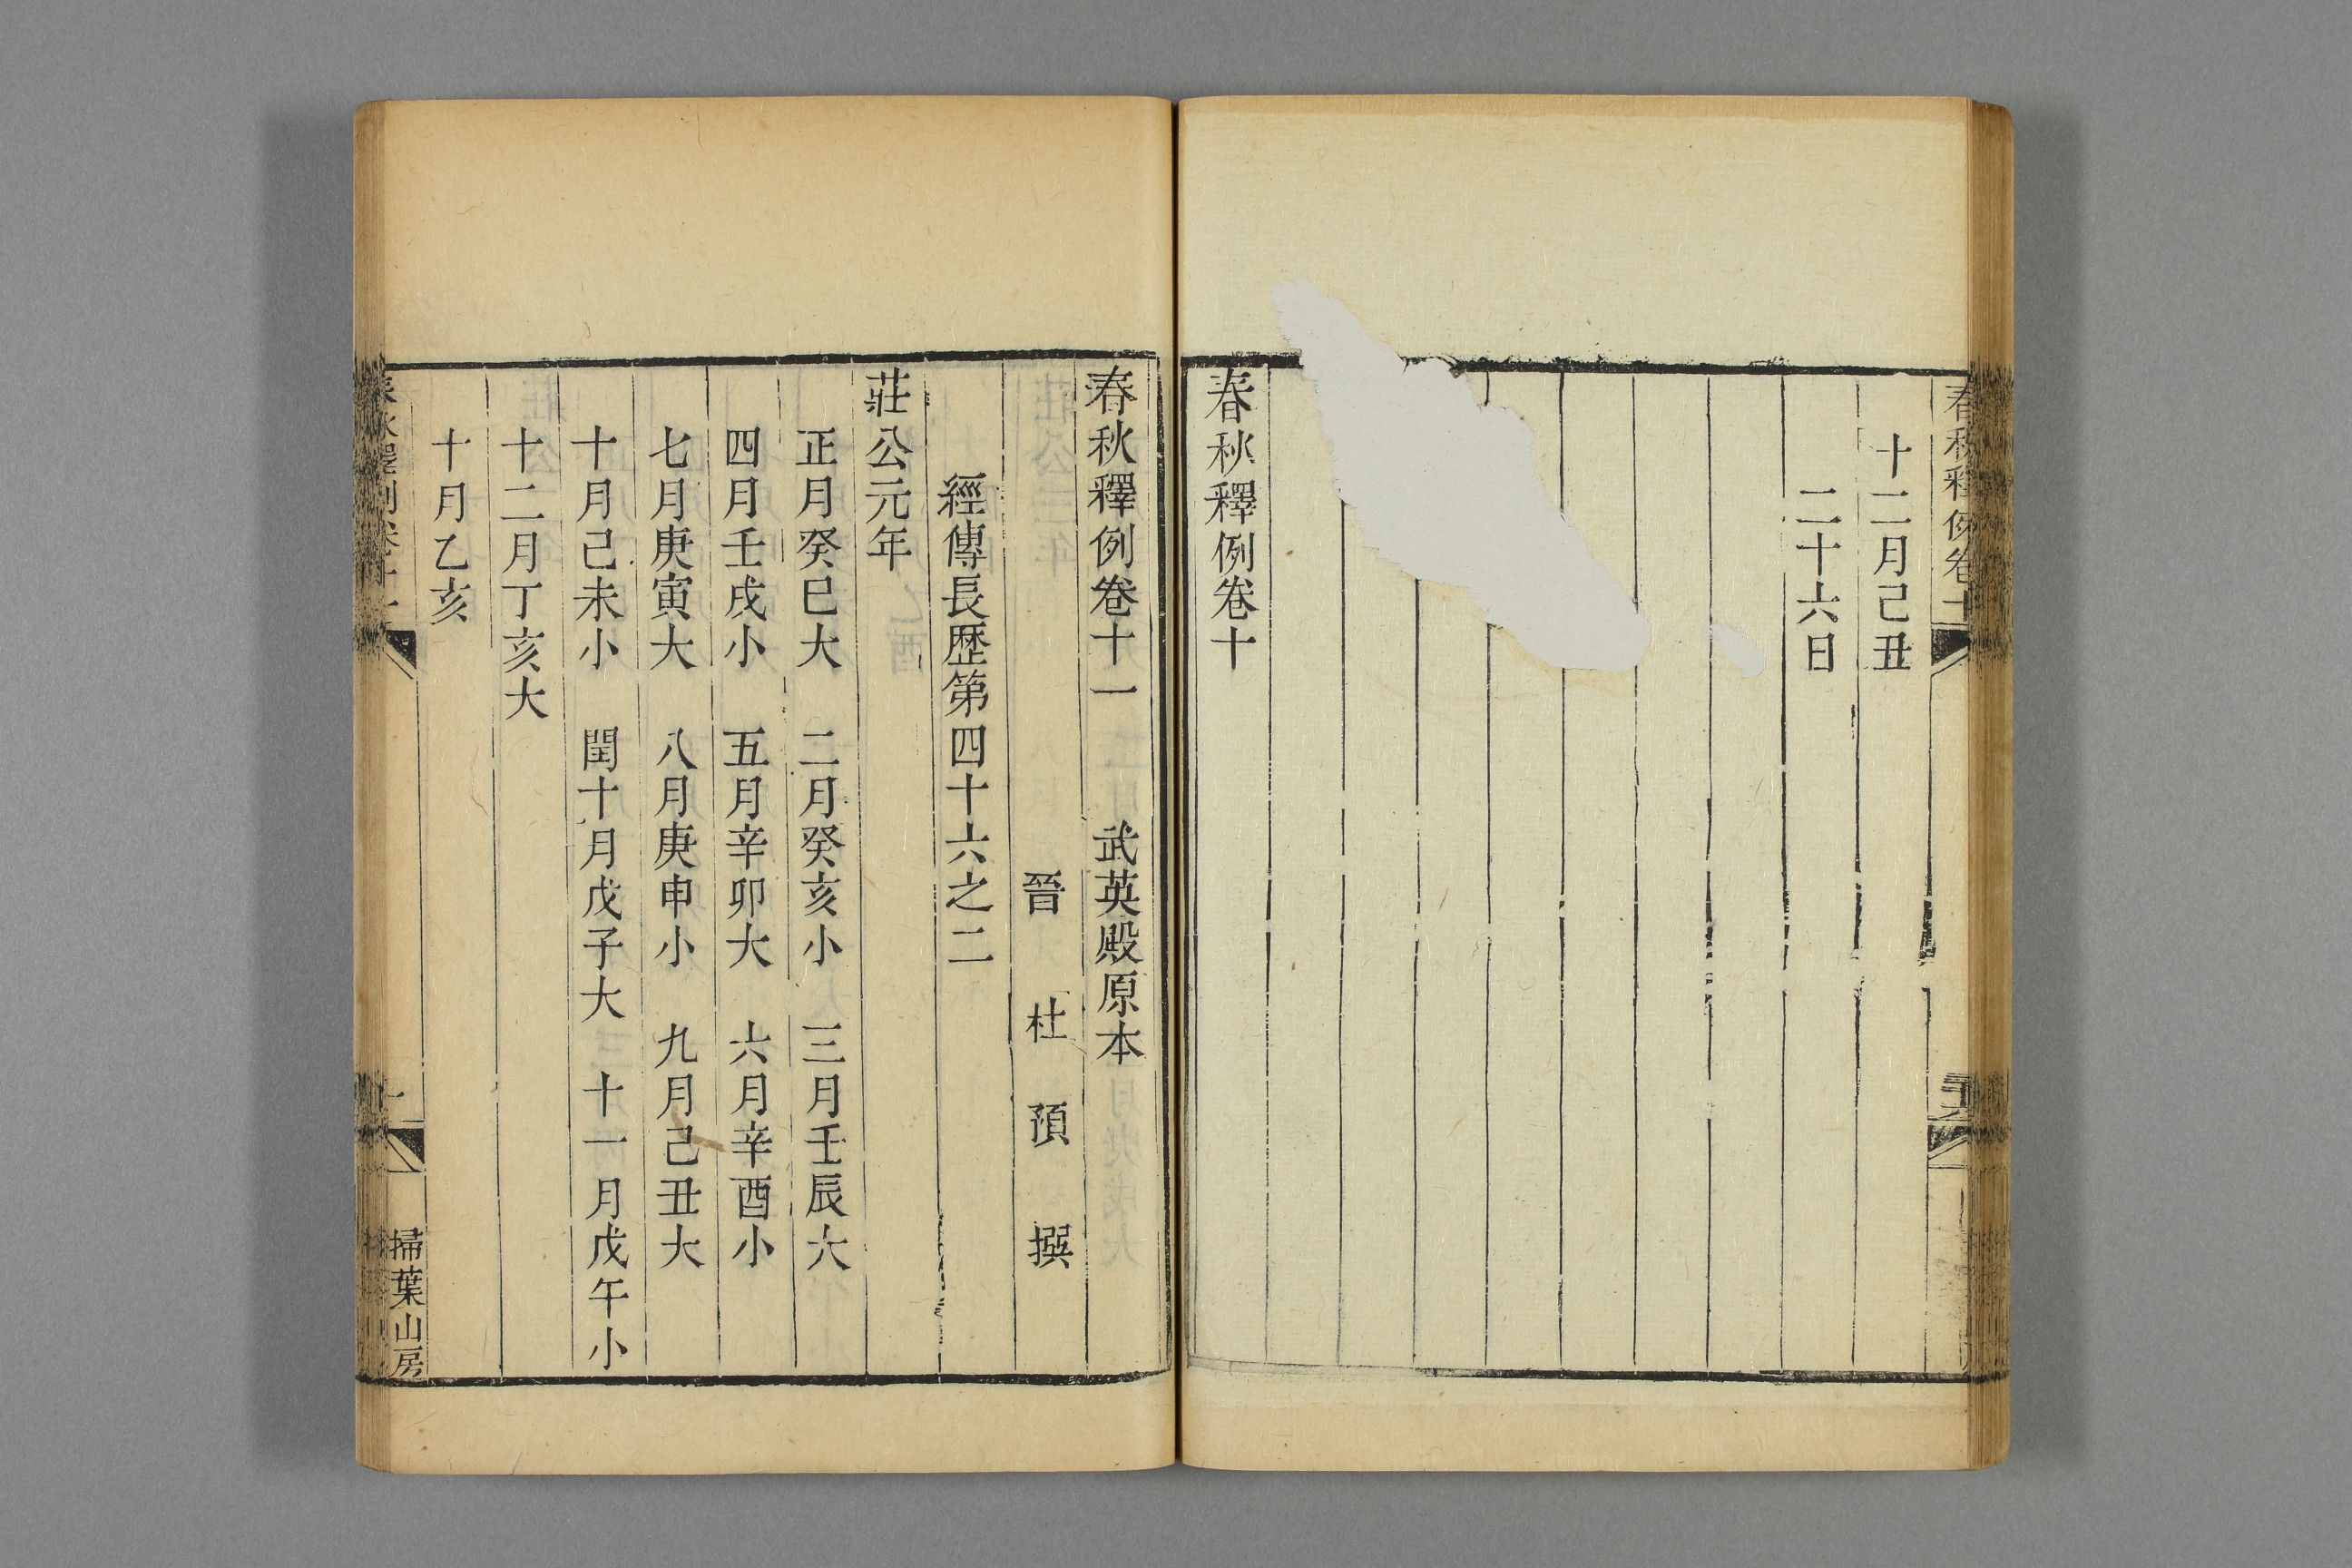 十二月己丑
二十六日
春秋釋例卷十
春秋釋例卷十一　武英殿原本
晉　杜　預　撰
經傳長歴第四十六之二
莊公元年
正月癸巳大　二月癸亥小　三月壬辰大
四月壬戌小　五月辛卯大　六月辛酉小
七月庚寅大　八月庚申小　九月己丑大
十月己未小　閏十月戊子大　十一月戊午小
十二月丁亥大
十月乙亥
掃葉山房